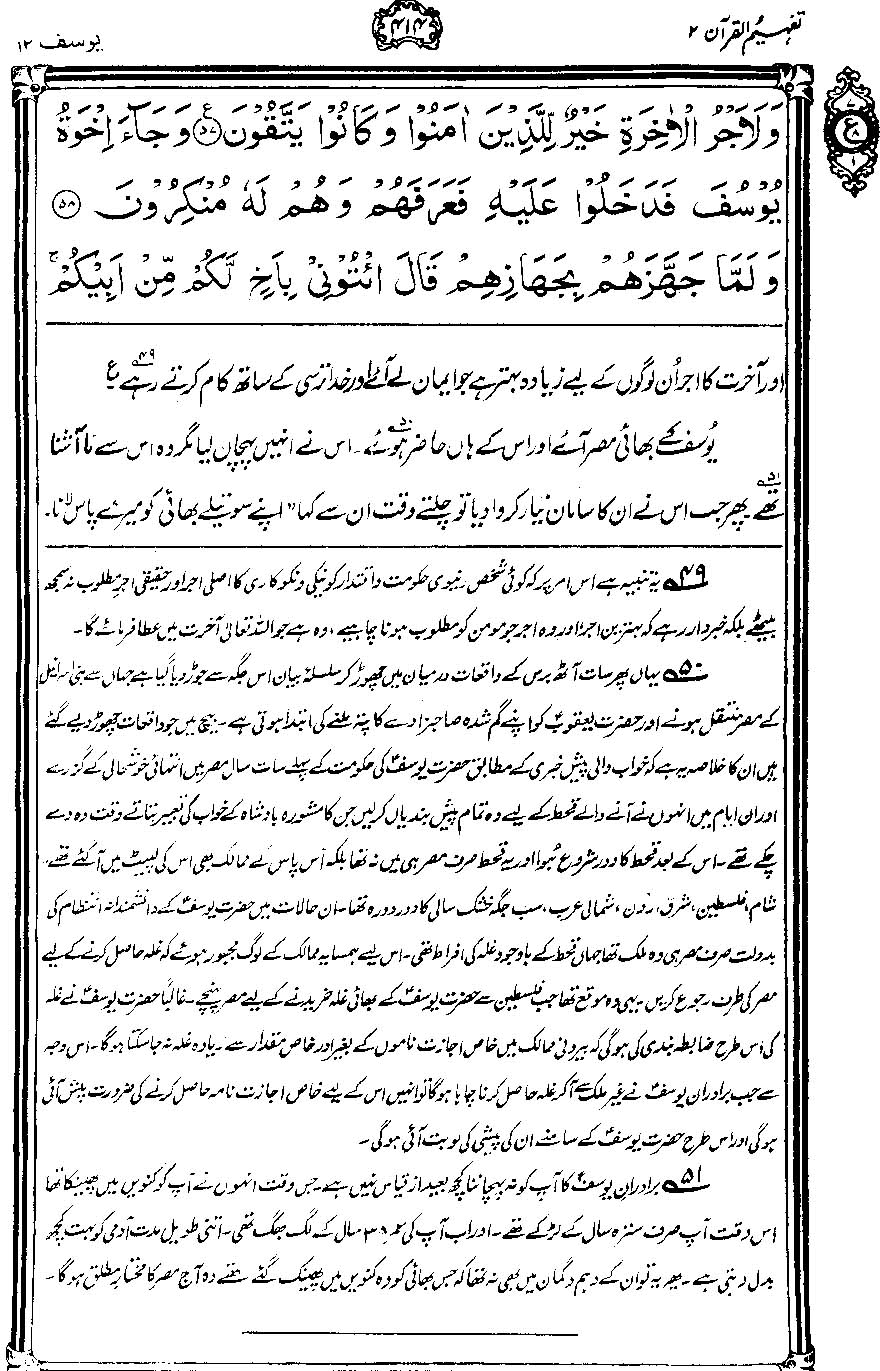 تفہیم القرآن ۲
۴۱۴
یوسف ۱۲
وَلَاَجْرُ الْاٰخِرَةِ خَيْرٌ لِّلَّذِيْنَ اٰمَنُوْا وَكَانُوْا يَتَّقُوْنَ ﴿۵۷﴾ع وَجَآءَ اِخْوَةُ
ع
۱
يُوْسُفَ فَدَخَلُوْا عَلَيْهِ فَعَرَفَهُمْ وَهُمْ لَهٗ مُنْكِرُوْنَ ﴿۵۸﴾
وَلَمَّا جَهَّزَهُمْ بِجَهَازِهِمْ قَالَ ائْتُوْنِيْ بِاَخٍ لَّكُمْ مِّنْ اَبِيْكُمْ ۚ
اور آخرت کا اجر اُن لوگوں کے لیے زیادہ بہتر ہے جو ایمان لے آئے اور خدا ترسی کے ساتھ کام کرتے رہے۴۹ ع
یُوسفؑ کے بھائی مصر آئے اور اس کے ہاں حاضر ہوئے۵۰۔ اس نے انہیں پہچان لیا مگر وہ اس سے نا آشنا
تھے۵۱۔ پھر جب اس نے ان کا سامان تیار کروا دیا تو چلتے وقت ان سے کہا "اپنے سوتیلے بھائی کو میرے پاس لانا۔
۴۹ یہ تنبیہ ہے اس امر پر کہ کوئی شخص دنیوی حکومت و اقتدار کو نیکی و نکوکاری کا اصلی اجر اور حقیقی اجرِ مطلوب نہ سمجھ
بیٹھے بلکہ خبردار رہے کہ بہترین اجر، اور وہ اجر جو مومن کو مطلوب ہونا چاہیے، وہ ہے جو اللہ تعالیٰ آخرت میں عطا فرمائے گا۔
۵۰ یہاں پھر سات آٹھ برس کے واقعات درمیان میں چھوڑ کر سلسلۂ بیان اس جگہ سے جوڑ دیا گیا ہے جہاں سے بنی اسرائیل
کے مصر منتقل ہونے اور حضرت یعقوبؑ کو اپنے گم شدہ صاحبزادے کا پتہ ملنے کی ابتدا ہوتی ہے۔ بیچ میں جو واقعات چھوڑ دیے گئے
ہیں ان کا خلاصہ یہ ہے کہ خواب والی پیش خبری کے مطابق حضرت یوسفؑ کی حکومت کے پہلے سات سال مصر میں انتہائی خوشحالی کے گزرے
اور ان ایام میں انہوں نے آنے والے قحط کے لیے وہ تمام پیش بندیاں کر لیں جن کا مشورہ بادشاہ کے خواب کی تعبیر بتاتے وقت وہ دے
چکے تھے۔ اس کے بعد قحط کا دور شروع ہُوا اور یہ قحط صرف مصر ہی میں نہ تھا بلکہ آس پاس کے ممالک بھی اس کی لپیٹ میں آگئے تھے۔
شام، فلسطین، شرق اردن، شمالی عرب، سب جگہ خشک سالی کا دور دورہ تھا۔ ان حالات میں حضرت یوسفؑ کے دانشمندانہ انتظام کی
بدولت صرف مصر ہی وہ ملک تھا جہاں قحط کے باوجود غلہ کی افراط تھی۔ اس لیے ہمسایہ ممالک کے لوگ مجبور ہوئے کہ غلہ حاصل کرنے کے لیے
مصر کی طرف رجوع کریں۔ یہی وہ موقع تھا جب فلسطین سے حضرت یوسفؑ کے بھائی غلہ خریدنے کے لیے مصر پہنچے۔ غالباً حضرت یوسفؑ نے غلہ
کی اس طرح ضابطہ بندی کی ہوگی کہ بیرونی ممالک میں خاص اجازت ناموں کے بغیر اور خاص مقدار سے زیادہ غلہ نہ جا سکتا ہوگا۔ اس وجہ
سے جب برادرانِ یوسفؑ نے غیر ملک سے آکر غلہ حاصل کرنا چاہا ہوگا تو انہیں اس کے لیے خاص اجازت نامہ حاصل کرنے کی ضرورت پیش آئی
ہوگی اور اس طرح حضرت یوسفؑ کے سامنے ان کی پیشی کی نوبت آئی ہوگی۔
۵۱ برادرانِ یوسفؑ کا آپ کو نہ پہچاننا کچھ بعید از قیاس نہیں ہے۔ جس وقت انہوں نے آپ کو کنویں میں پھینکا تھا
اس وقت آپ صرف سترہ سال کے لڑکے تھے۔ اور اب آپ کی عمر ۳۸ سال کے لگ بھگ تھی۔ اتنی طویل مدت آدمی کو بہت کچھ
بدل دیتی ہے۔ پھر یہ تو ان کے وہم و گمان میں بھی نہ تھا کہ جس بھائی کو وہ کنویں میں پھینک گئے تھے وہ آج مصر کا مختارِ مطلق ہوگا۔